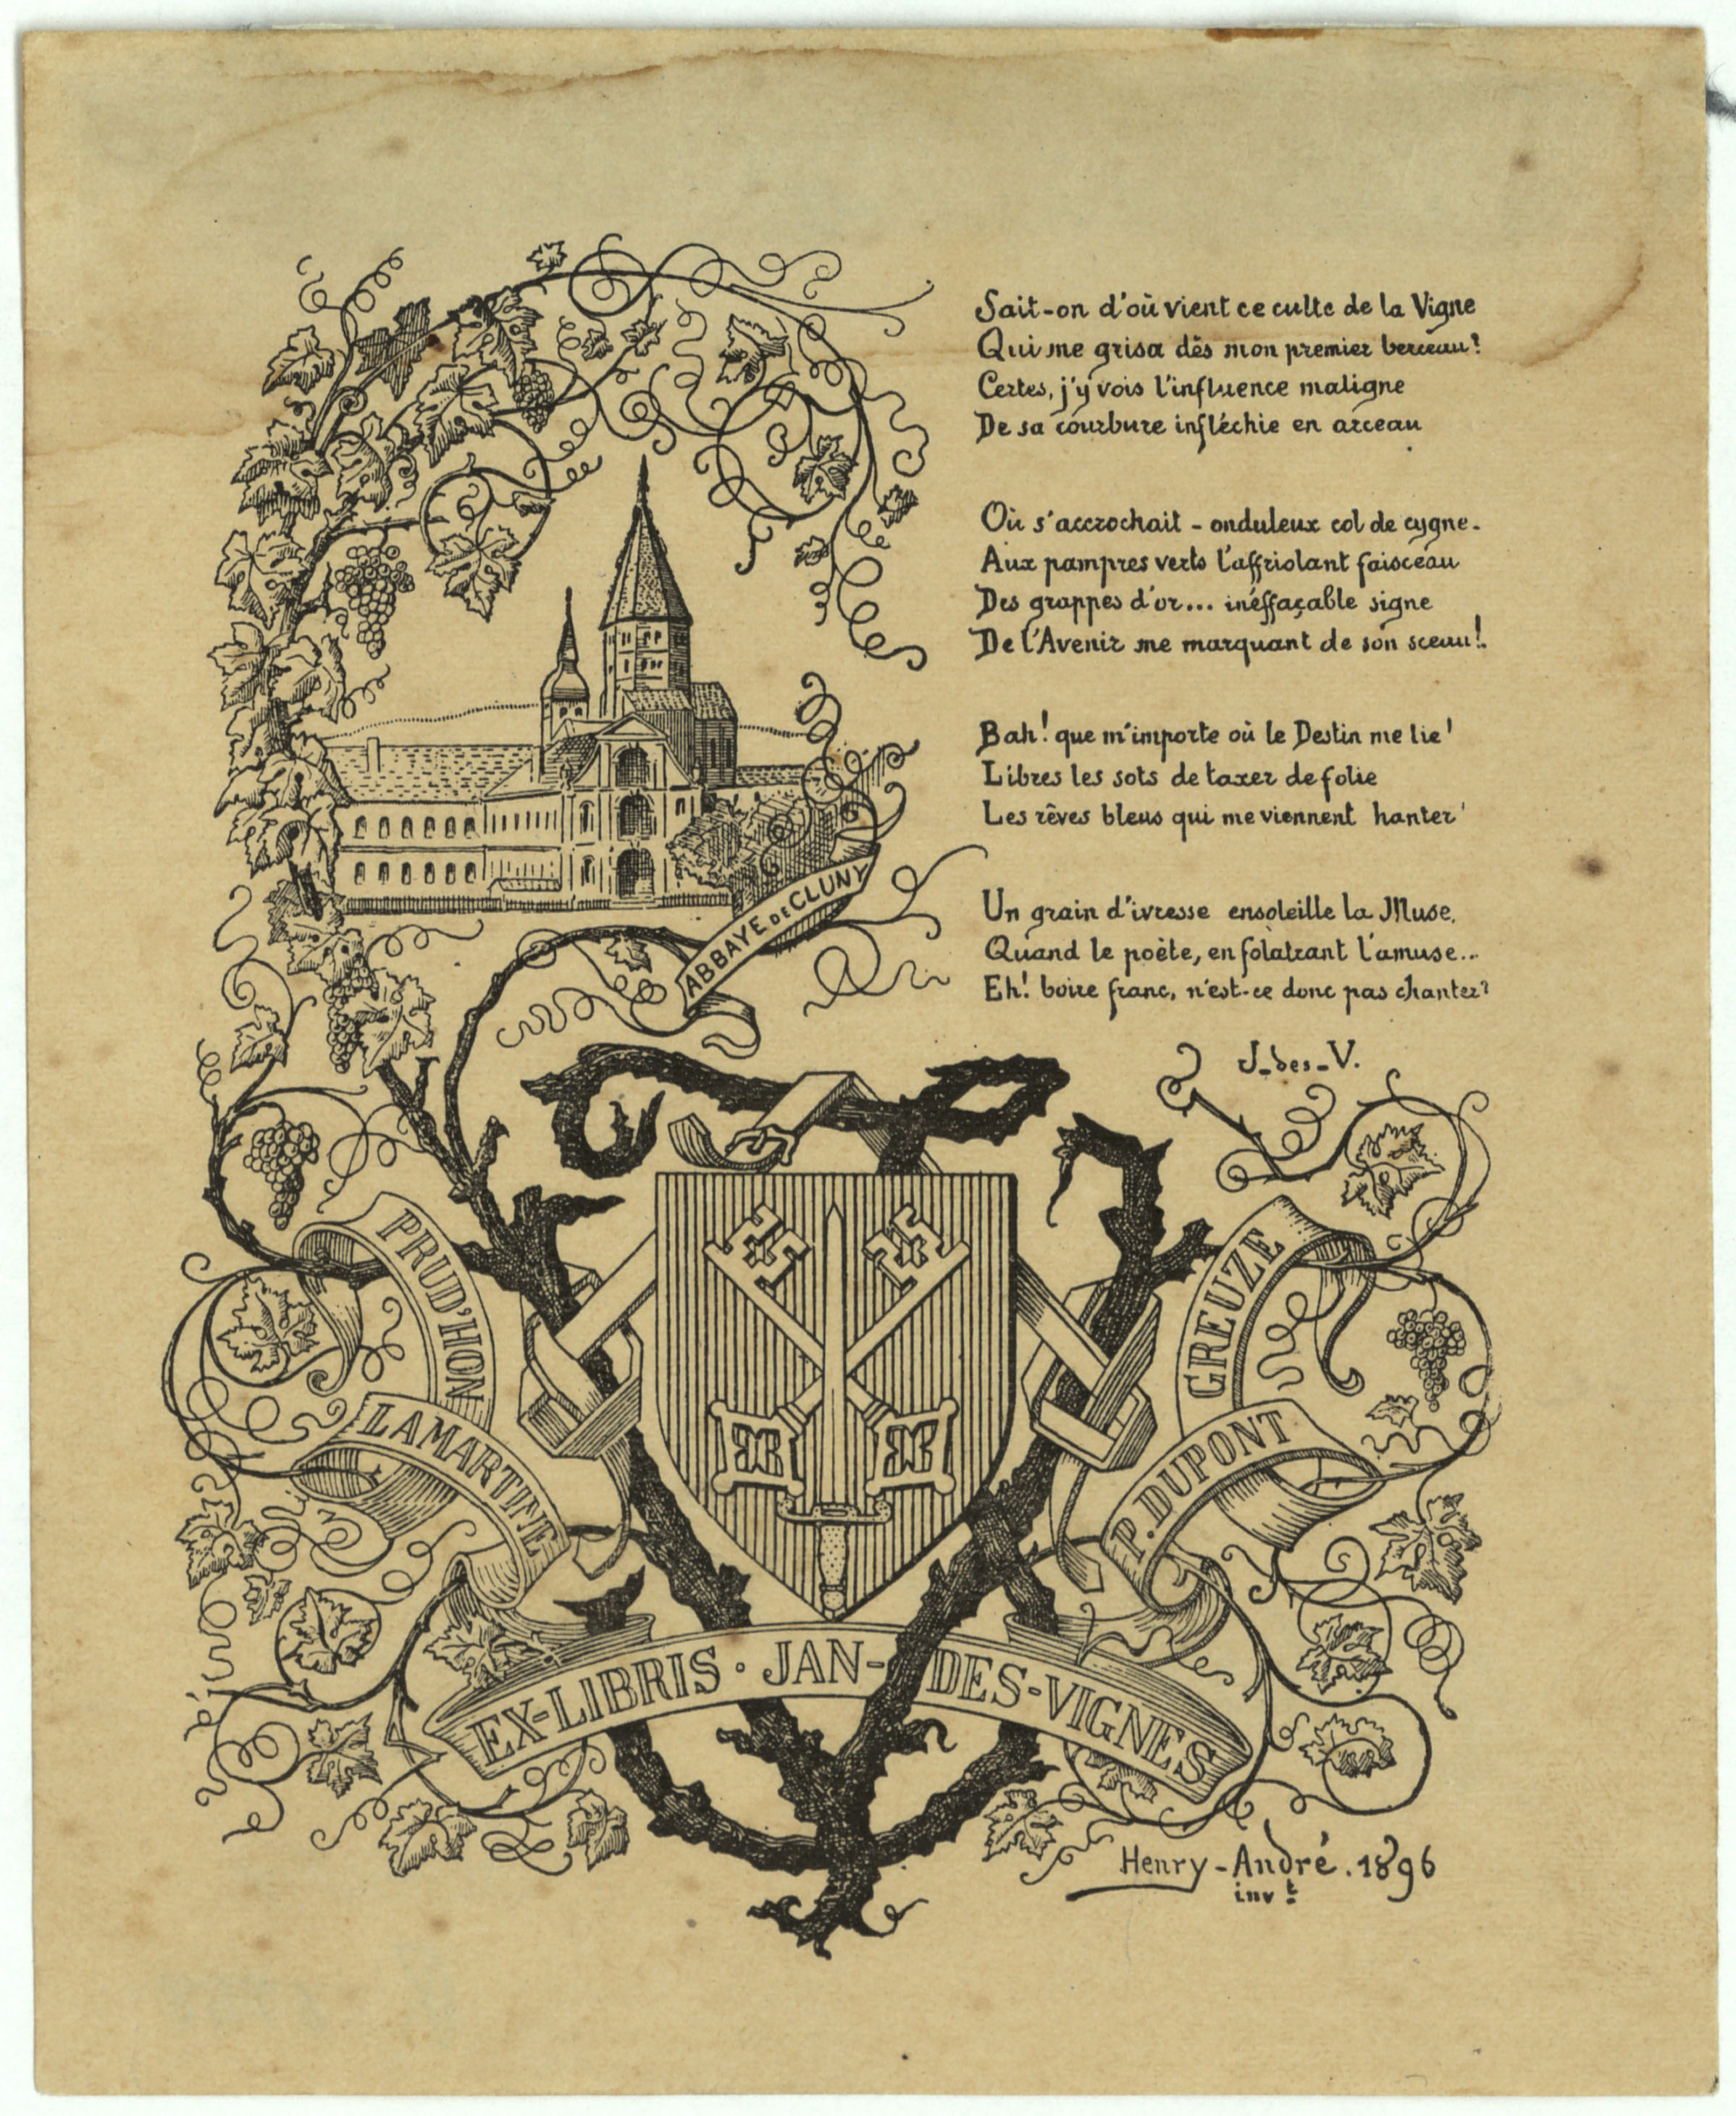 Sait-on d'où vient ce culte de la Vigne
Qui me grisa dès mon premier berceau?
Certes, j'y vois l'influence maligne
De sa courbure infléchie en arceau
Où s'accrochait - onduleux col de cygne -
Aux pampres verts l'affriolant faisceau
Des grappes d'or... inéffaçable signe
De l'Avenir me marquant de son sceau!
Bah! que m'importe où le Destin me lie!
Libres les sots de taxer de folie
Les rêves bleus qui me viennent hanter!
Un grain d'ivresse ensoleille la Muse,
Quand le poète, en folatrant l'amuse...
Eh! boire franc, n'est-ce donc pas chanter?
J-des-V.
ABBAYE DE CLUNY
PRUD'HON
LAMARTINE
GREUZE
P. DUPONT
EX-LIBRIS · JAN-DES-VIGNES
Henry-André. 1896
invt